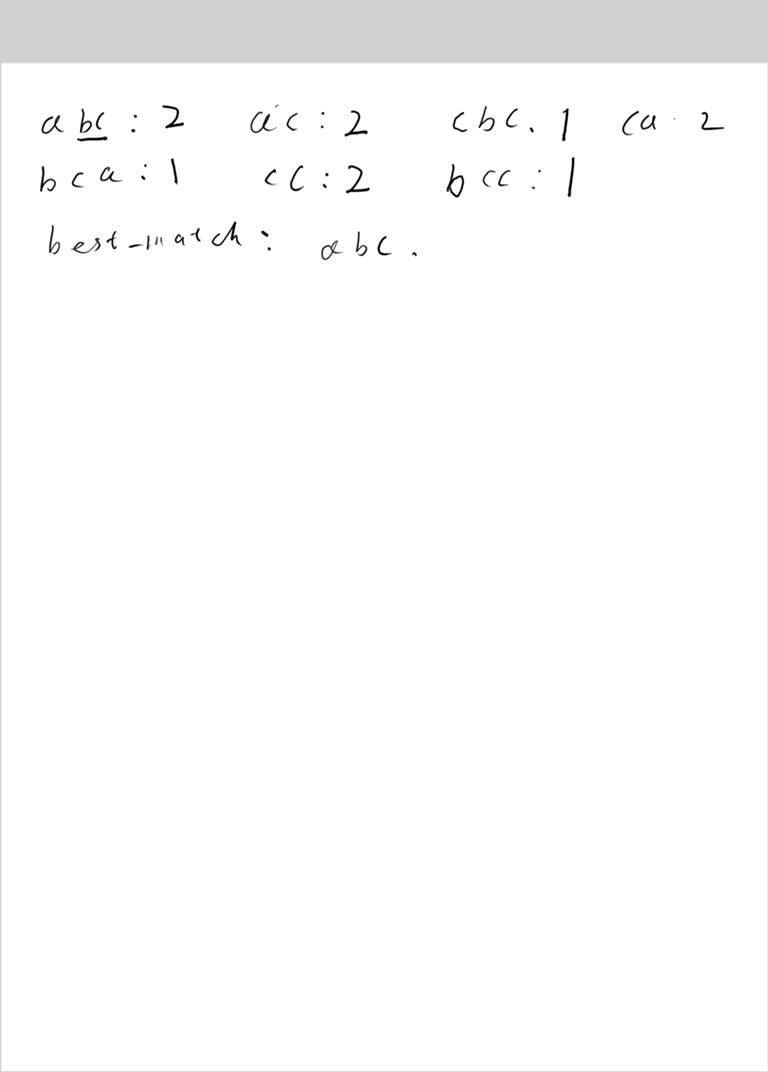 abc : 2 ac : 2 cbc. 1 ca . 2
bca : 1 cc : 2 bcc : 1
best-match : abc.